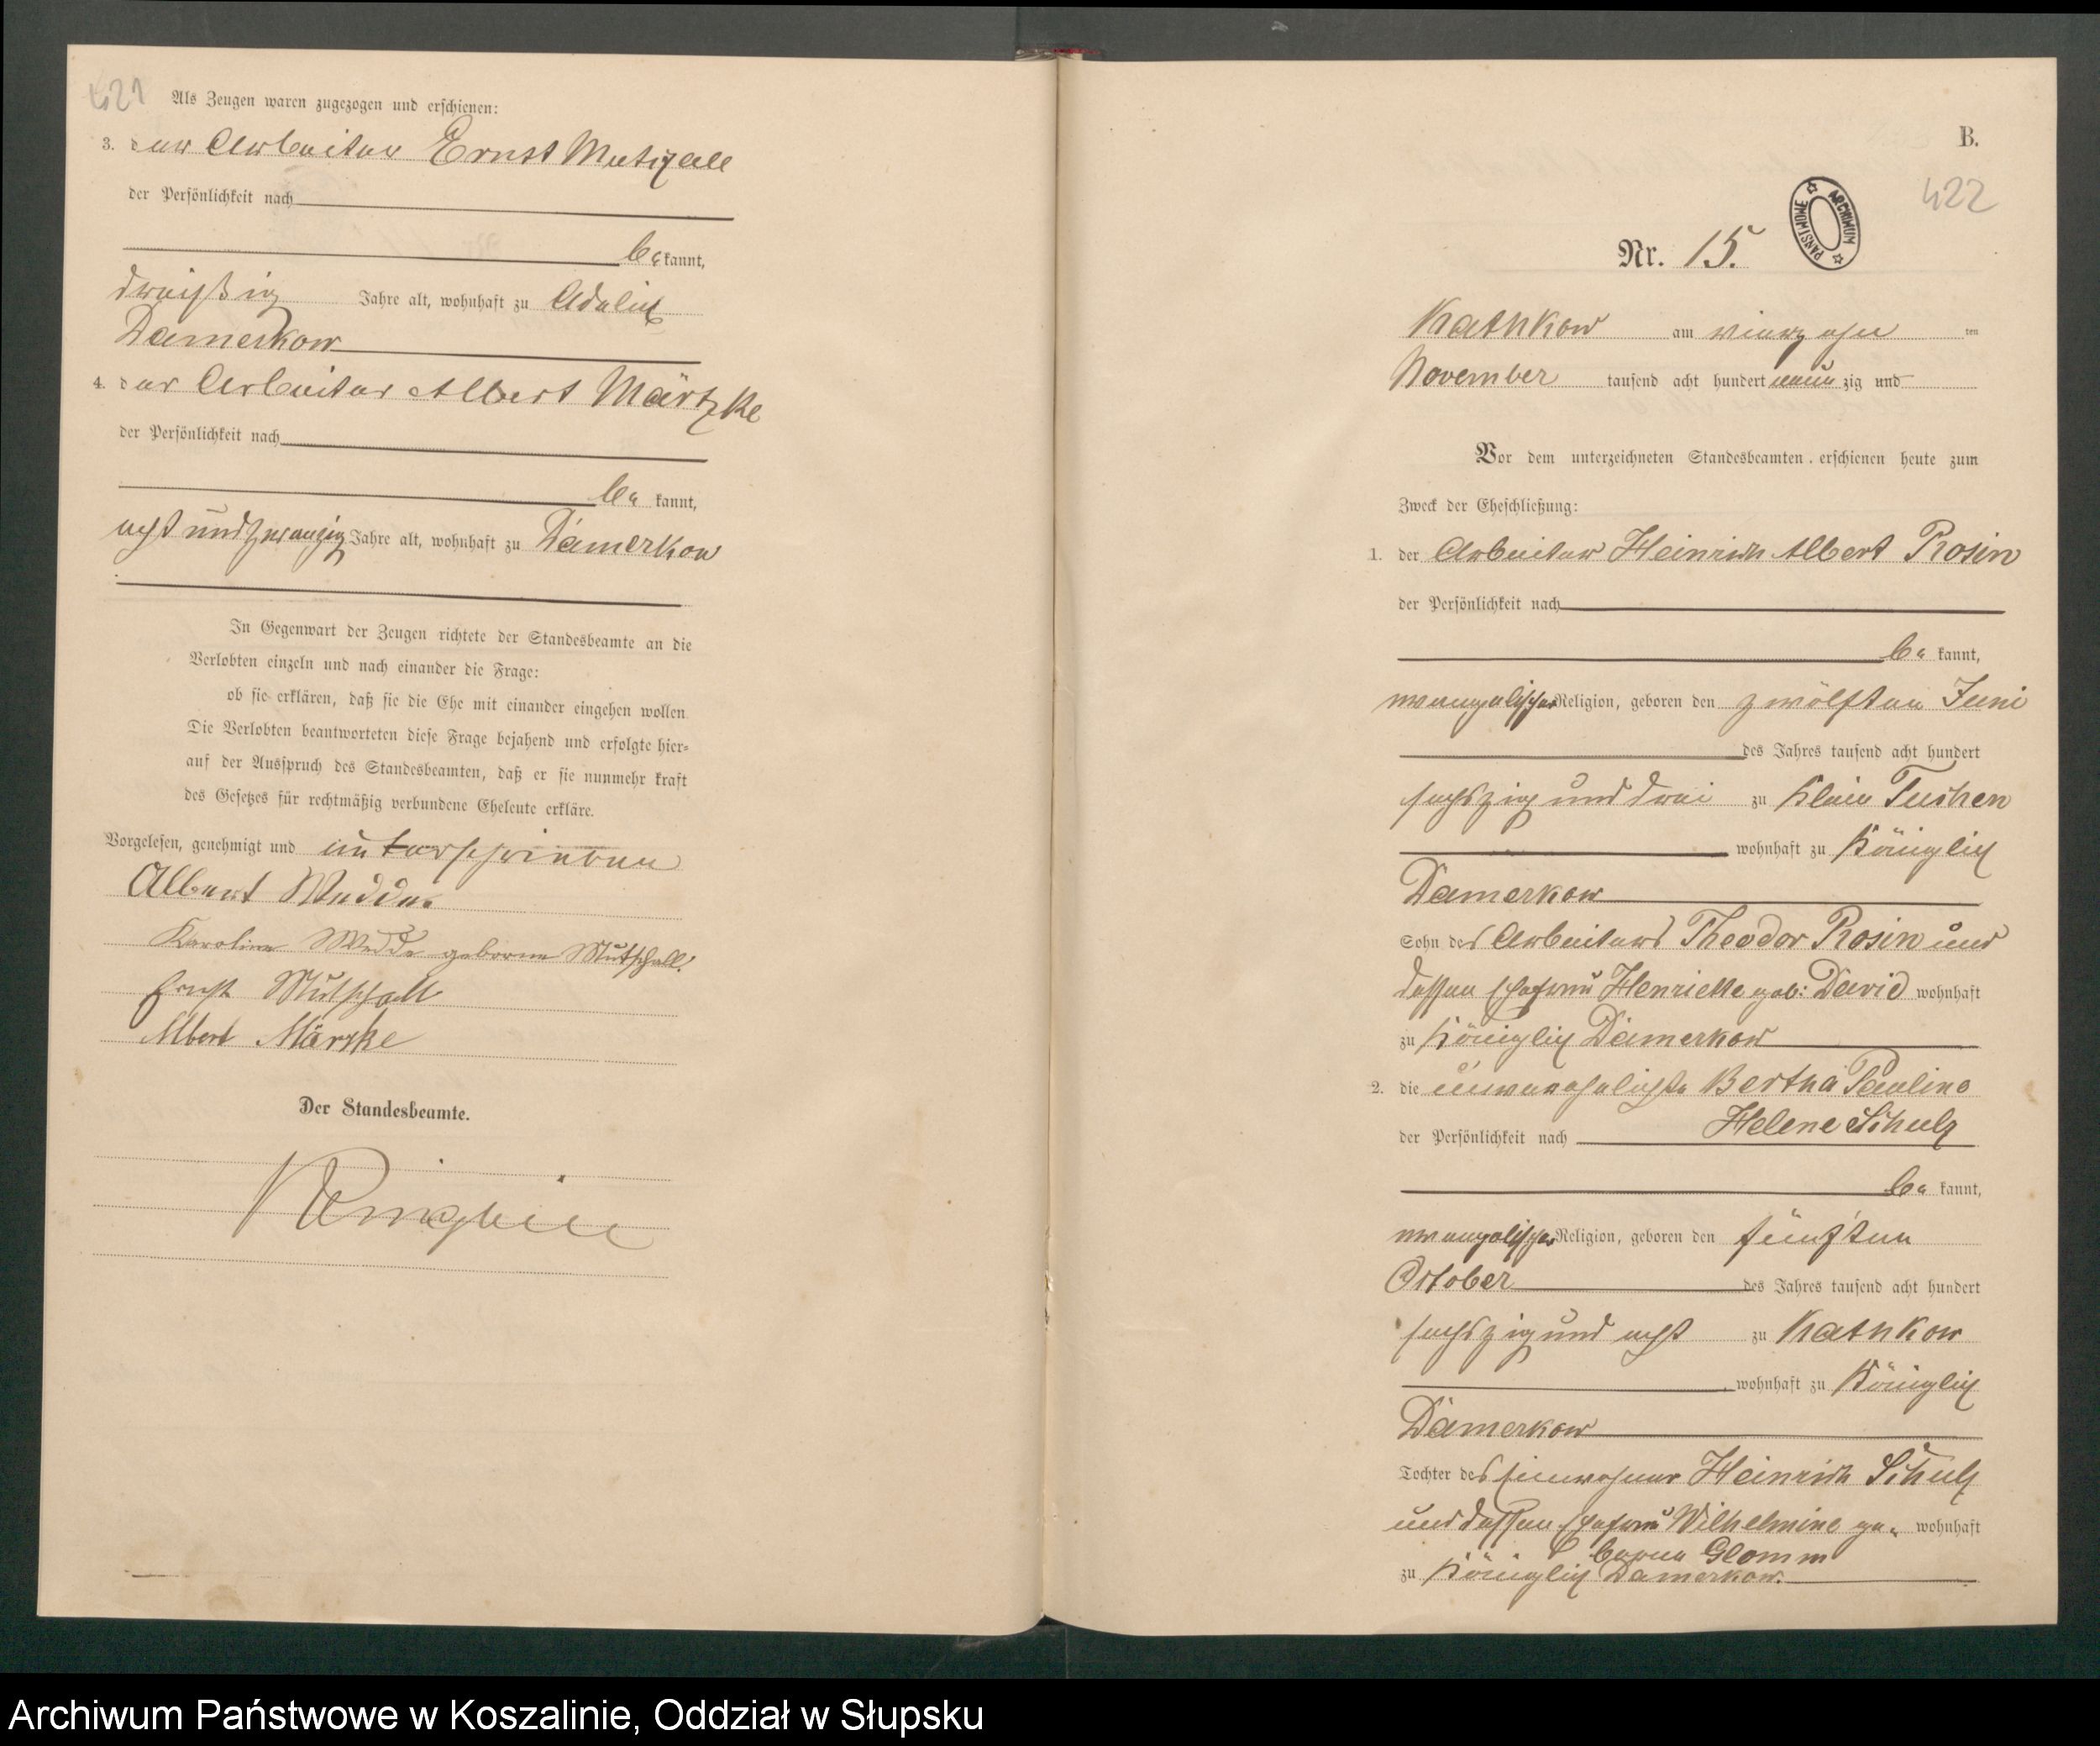 421
Als Zeugen waren zugezogen und erschienen:
3. der Arbeiter Ernst Mutschall
der Persönlichkeit nach
be kannt,
dreißig Jahre alt, wohnhaft zu Adelig
Damerkow
4. der Arbeiter Albert Märtzke
der Persönlichkeit nach
be kannt,
acht und zwanzig Jahre alt, wohnhaft zu Damerkow
In Gegenwart der Zeugen richtete der Standesbeamte an die
Verlobten einzeln und nach einander die Frage:
ob sie erklären, daß sie die Ehe mit einander eingehen wollen
Die Verlobten beantworteten diese Frage bejahend und erfolgte hier-
auf der Ausspruch des Standesbeamten, daß er sie nunmehr kraft
des Gesetzes für rechtmäßig verbundene Eheleute erkläre.
Vorgelesen, genehmigt und unterschrieben
Albert Wedde
Karoline Wedde geborne Mutschall.
Ernst Mutschall
Albert Märzke
Der Standesbeamte.
B.
422
ARCHIWUM PAŃSTWOWE
Nr. 15.
Kathkow am vierzehn ten
November tausend acht hundert neun zig und
Vor dem unterzeichneten Standesbeamten erschienen heute zum
Zweck der Eheschließung:
1. der Arbeiter Heinrich Albert Rosin
der Persönlichkeit nach
be kannt,
evangelischer Religion, geboren den zwölften Juni
des Jahres tausend acht hundert
sechszig und drei zu Klein Tuchen
wohnhaft zu Königlich
Damerkow
Sohn des Arbeiters Theodor Rosin und
dessen Ehefrau Henriette geb: David wohnhaft
zu Königlich Damerkow
2. die unverehelichte Bertha Pauline
Helene Schulz
der Persönlichkeit nach
be kannt,
evangelischer Religion, geboren den fünften
October des Jahres tausend acht hundert
sechszig und acht zu Kathkow
wohnhaft zu Königlich
Damerkow
Tochter des Einwohner Heinrich Schulz
und dessen Ehefrau Wilhelmine ge- wohnhaft
borene Glomm
zu Königlich Damerkow.
Archiwum Państwowe w Koszalinie, Oddział w Słupsku